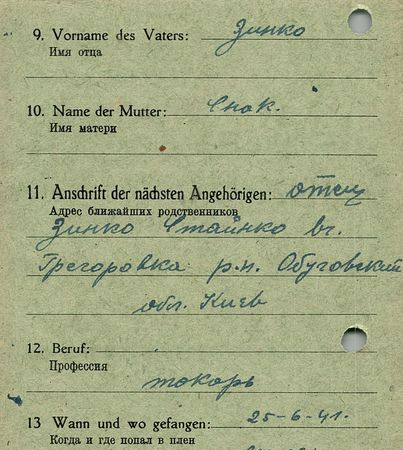 9. Vorname des Vaters: Зинко
Имя отца
10. Name der Mutter:
Имя матери
11. Anschrift der nächsten Angehörigen: отец
Адрес ближайших родственников
Зинко
Грегоровка р.н. Обуговский
обл. Киев
12. Beruf:
Профессия
токарь
13 Wann und wo gefangen: 25-6-41.
Когда и где попал в плен